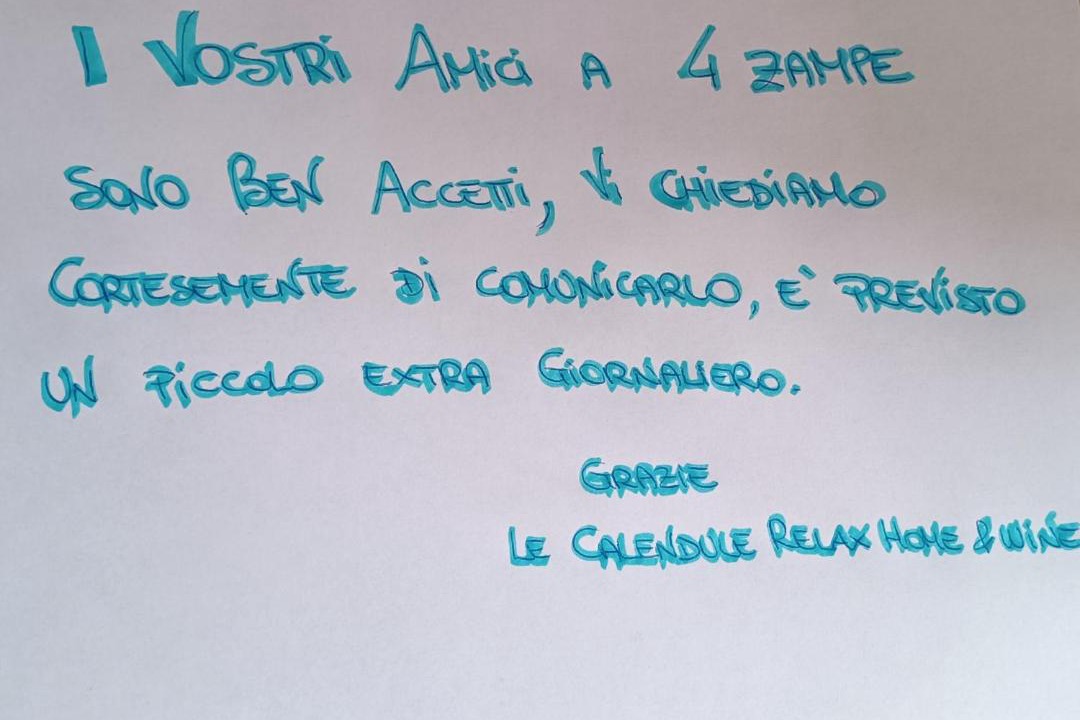 I VOSTRI AMICI A 4 ZAMPE
SONO BEN ACCETTI, VI CHIEDIAMO
CORTESEMENTE DI COMUNICARLO, E' PREVISTO
UN PICCOLO EXTRA GIORNALIERO.
GRAZIE
LE CALENDULE RELAX HOME & WINE